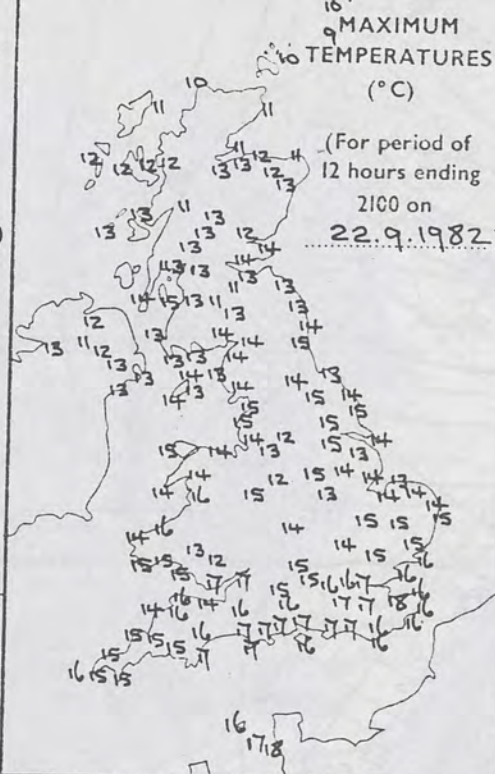 10
9 MAXIMUM
10 TEMPERATURES
(°C)
10
11 11
(For period of
12 hours ending
2100 on
22.9.1982
11
12 12 12 12 13 13 12 11
12
13
13 11 13
13 13 12
13 14
13 13 14
13
11 13
14 15 13 11 13
12 13 14
13 11 12 13 14 14 15
13 13 13 14
13 13 14 13 13
14 13 14 14 15 14
15 15
15 15
14 12 15 14
15 14 13 13
14 12 15 14 14 13
14 16 15 13 14 14
14
15
16 14 15 15
14
15 15 13 12 14 15 15
15 15 16
17 17 15 16 16 17 16
16 14 15 16 17 17 18 16
14 16 16 16
15 15 15 16 17 17 17 17 17 17 16
15 17 17 16 16
16 15 15
16
17 18